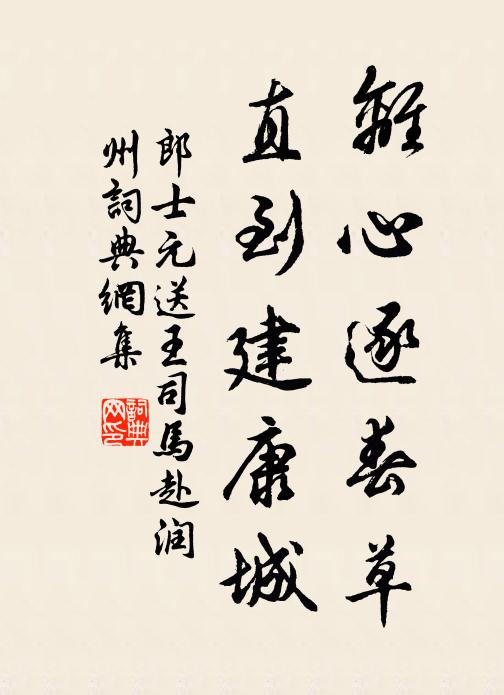 離心逐春草
直到建康城
郎士元送王司馬赴润
州詞典網集
詞典网印